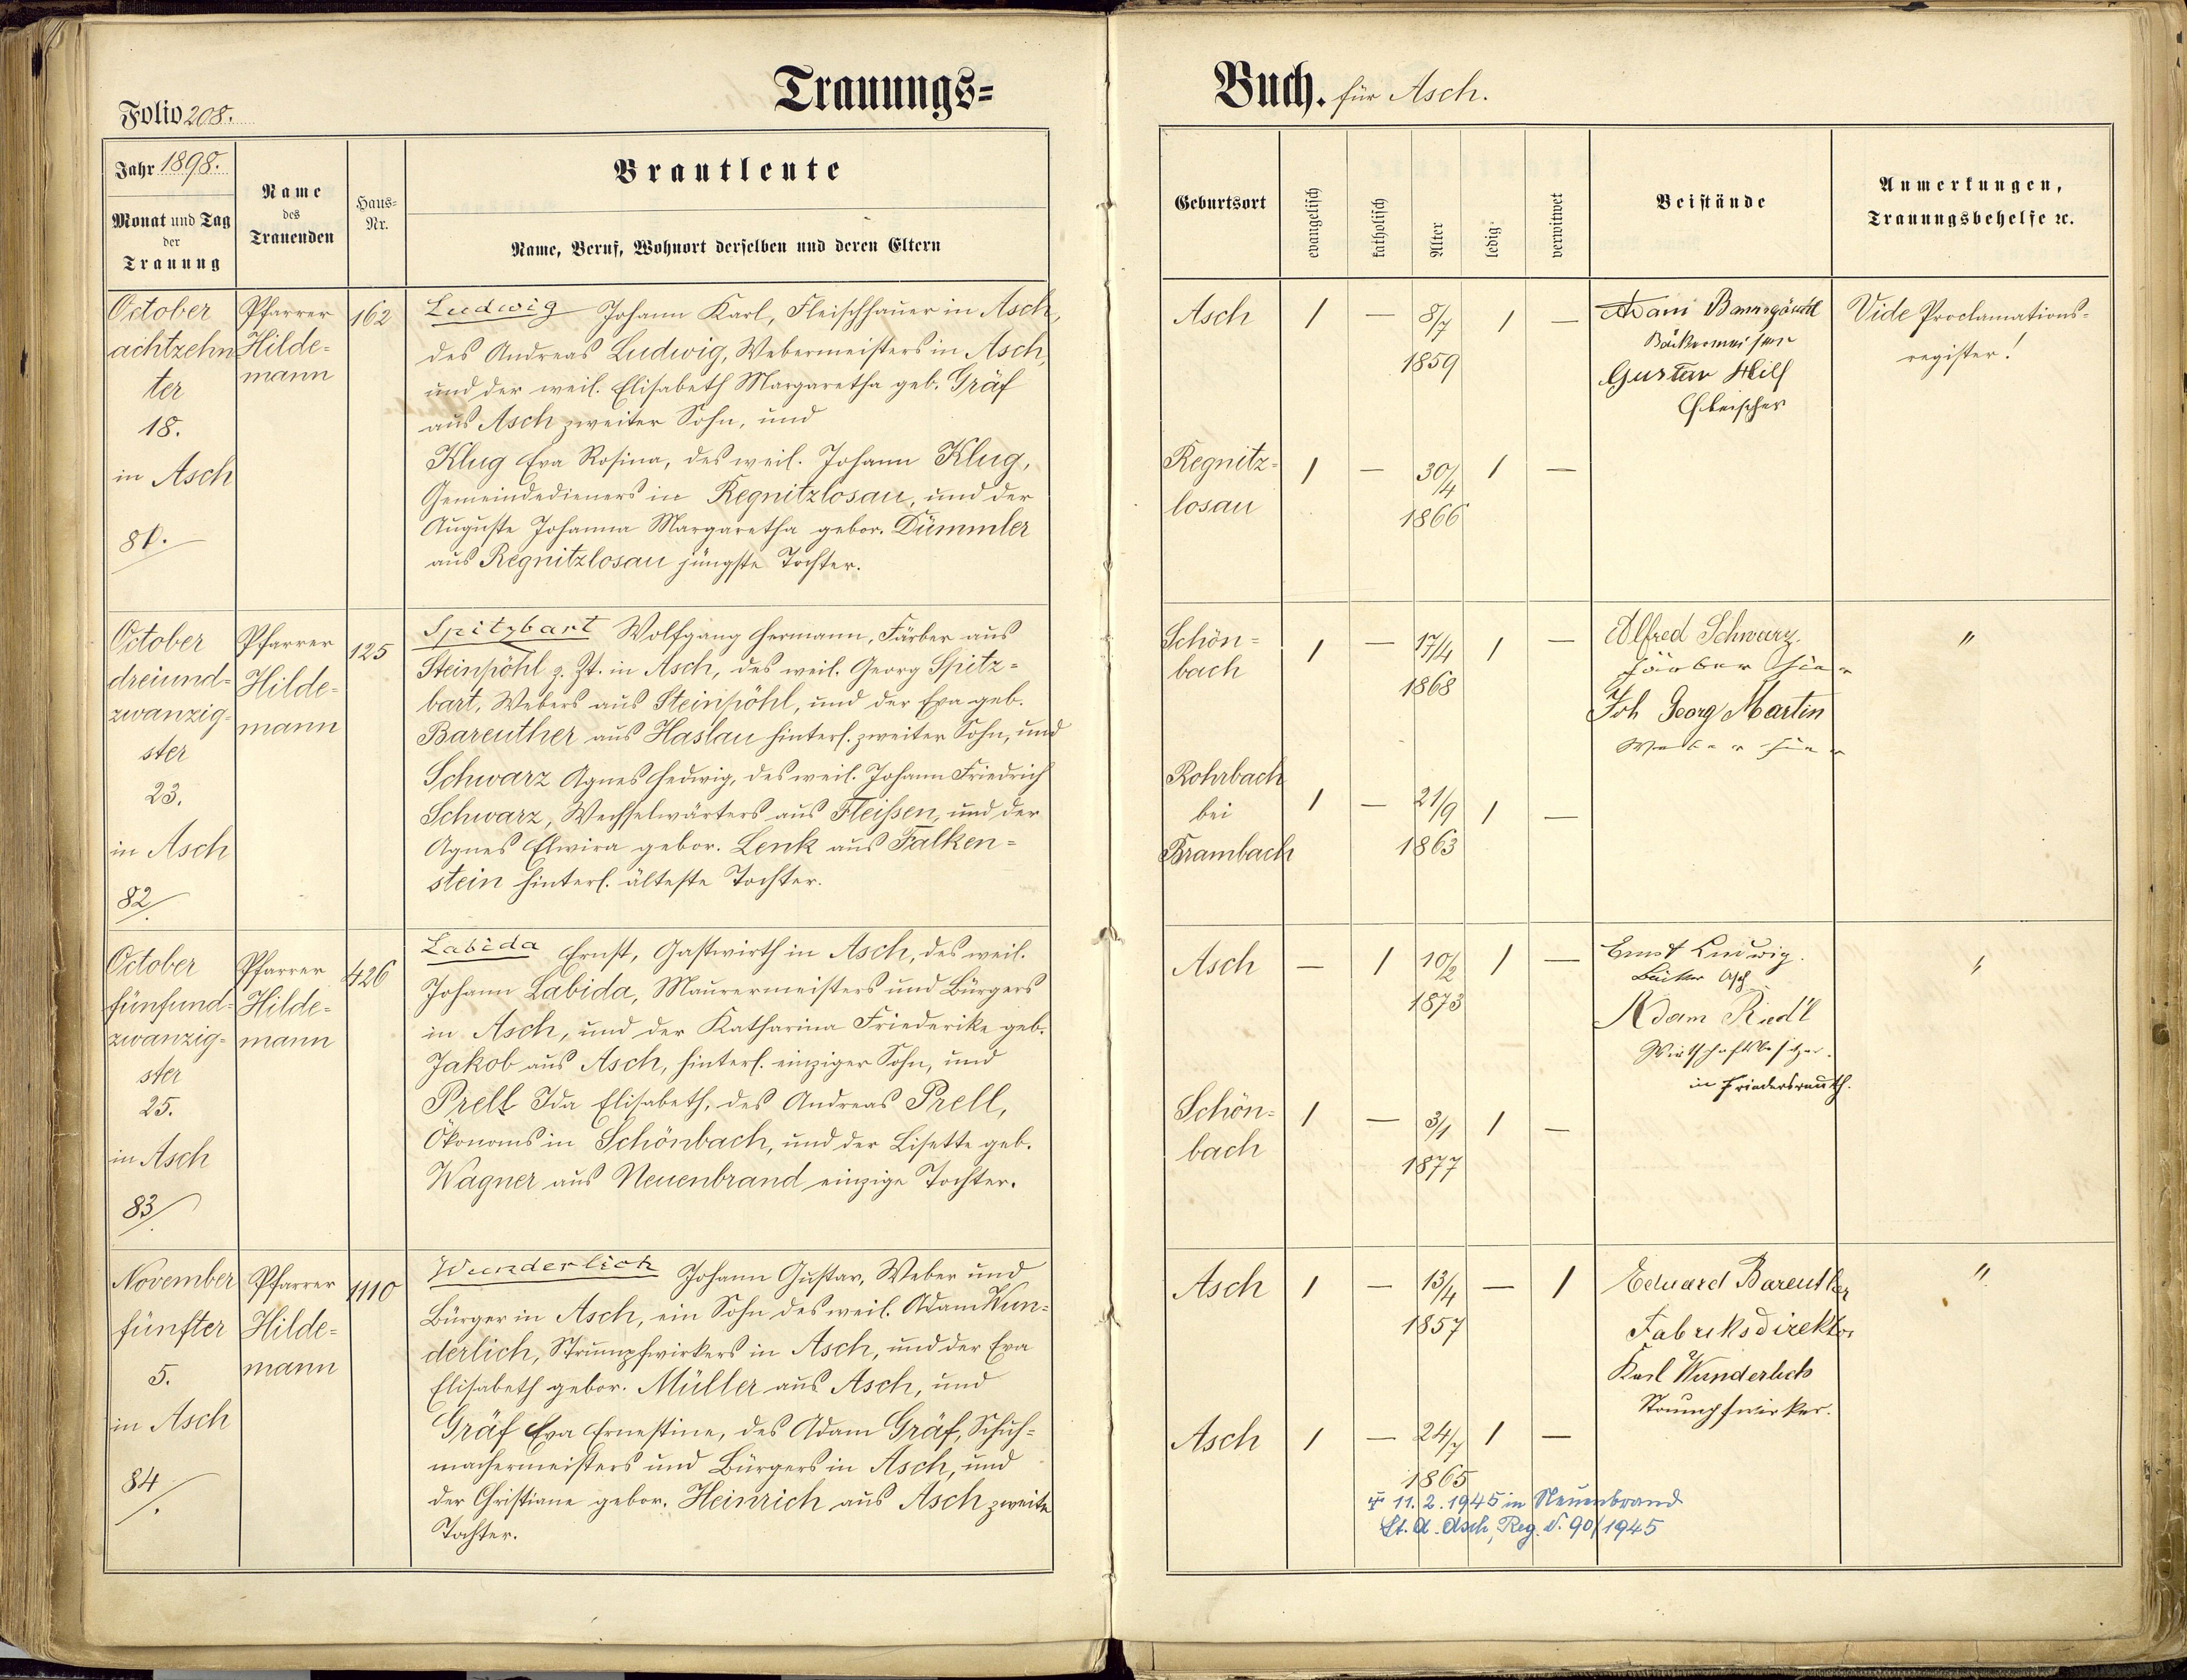 Folio 208.
Trauungs=
Jahr 1898.
Monat und Tag
der
Trauung
Name
des
Trauenden
Haus=
Nr.
Brautleute
Name, Beruf, Wohnort derselben und deren Eltern
October
achtzehn
ter
18.
in Asch
81.
Pfarrer
Hilde=
mann
162
Ludwig Johann Karl, Fleischhauer in Asch,
des Andreas Ludwig, Webermeisters in Asch,
und der weil. Elisabeth Margaretha geb. Gräf
aus Asch zweiter Sohn, und
Klug Eva Rosina, des weil. Johann Klug,
Gemeindedieners in Regnitzlosau, und der
Auguste Johanna Margaretha gebor. Dümmler
aus Regnitzlosau jüngste Tochter.
October
dreiund=
zwanzig=
ster
23.
in Asch
82.
Pfarrer
Hilde=
mann
125
Spitzbart Wolfgang Hermann, Färber aus
Steinpöhl z. Zt. in Asch, des weil. Georg Spitz=
bart, Webers aus Steinpöhl, und der Eva geb.
Bareuther aus Haslau hinterl. zweiter Sohn, und
Schwarz Agnes Hedwig, des weil. Johann Friedrich
Schwarz, Wechselwärters aus Fleißen, und der
Agnes Elwira gebor. Lenk aus Falken=
stein hinterl. älteste Tochter.
October
fünfund=
zwanzig=
ster
25.
in Asch
83.
Pfarrer
Hilde=
mann
426
Labida Ernst, Gastwirth in Asch, des weil.
Johann Labida, Maurermeisters und Bürgers
in Asch, und der Katharina Friederike geb.
Jakob aus Asch, hinterl. einziger Sohn, und
Prell Ida Elisabeth, des Andreas Prell,
Ökonoms in Schönbach, und der Lisette geb.
Wagner aus Neuenbrand einzige Tochter.
November
fünfter
5.
in Asch
84.
Pfarrer
Hilde=
mann
1110
Wunderlich Johann Gustav, Weber und
Bürger in Asch, ein Sohn des weil. Adam Wun=
derlich, Strumpfwirkers in Asch, und der Eva
Elisabeth gebor. Müller aus Asch, und
Gräf Eva Ernestine, des Adam Gräf, Schuh=
machermeisters und Bürgers in Asch, und
der Christiane gebor. Heinrich aus Asch zweite
Tochter.
Buch. für Asch.
Geburtsort
evangelisch
katholisch
Alter
ledig
verwitwet
Beistände
Anmerkungen,
Trauungsbehelfe ꝛc.
Asch 1 — 8/7 1 —
1859
Regnitz= 1 — 30/4 1 —
losau
1866
Bäckermeister
Gustav
Fleischer
Vide Proclamations=
register!
Schön= 1 — 17/4 1 —
bach
1868
Rohrbach
bei 1 — 21/9 1 —
Brambach
1863
Alfred Schwarz.
Färber hier
Joh Georg Martin
Weber hier
"
Asch — 1 10/2 1 —
1873
Schön= 1 — 3/1 1 —
bach
1877
Ernst Ludwig.
Bäcker Asch
Adam Riedl
Wirtschaftsbesitzer.
in Friedersreuth.
"
Asch 1 — 13/4 — 1
1857
Asch 1 — 24/7 1 —
1865
Eduard Bareuther
Fabriksdirektor
Karl Wunderlich
Strumpfwirker.
"
✝ 11. 2. 1945 in Neuenbrand
St. A. Asch, Reg. N. 90/1945